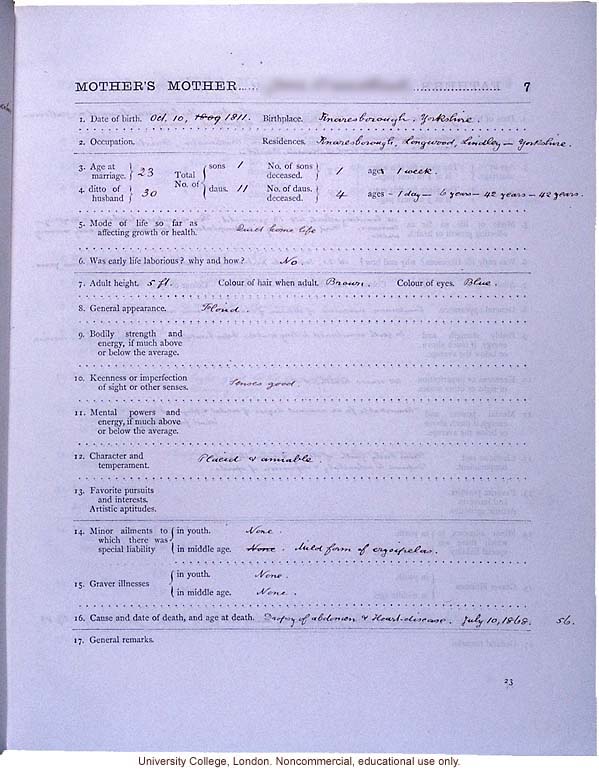 MOTHER'S MOTHER 7
1. Date of birth. Oct. 10, 1809 1811. Birthplace. Knaresborough. Yorkshire.
2. Occupation. Residences. Knaresborough, Longwood, Lindley — Yorkshire.
3. Age at marriage. } 23 Total No. of { sons 1 No. of sons deceased. } 1 ages 1 week.
4. ditto of husband } 30 daus. 11 No. of daus. deceased. } 4 ages - 1 day — 6 years — 42 years — 42 years.
5. Mode of life so far as
affecting growth or health. Quiet home life
6. Was early life laborious? why and how? No.
7. Adult height. 5 ft. Colour of hair when adult. Brown. Colour of eyes. Blue.
8. General appearance. Florid.
9. Bodily strength and
energy, if much above
or below the average.
10. Keenness or imperfection
of sight or other senses. Senses good.
11. Mental powers and
energy, if much above
or below the average.
12. Character and
temperament. Placid & amiable.
13. Favorite pursuits
and interests.
Artistic aptitudes.
14. Minor ailments to { in youth. None.
which there was
special liability { in middle age. None. Mild form of erysipelas.
15. Graver illnesses { in youth. None.
{ in middle age. None.
16. Cause and date of death, and age at death. Dropsy of abdomen & Heart-disease. July 10, 1868. 56.
17. General remarks.
23
University College, London. Noncommercial, educational use only.